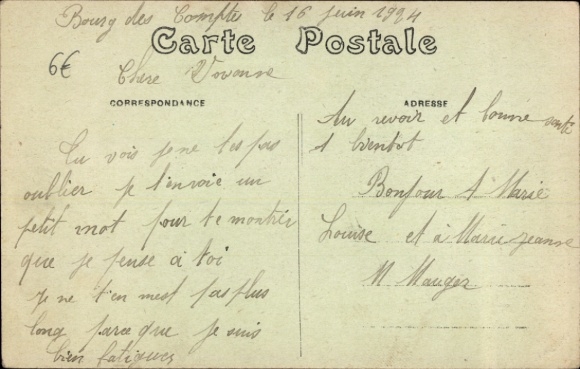 Bourg des Comptes le 16 juin 1924
Carte Postale
6€
Chere Yvonne
CORRESPONDANCE
ADRESSE
Tu vois je ne t'es pas
oublier je t'envoie un
petit mot pour te montrer
que je pense à toi
Je ne t'en met pas plus
long parce que je suis
bien fatiguer
Au revoir et bonne santé
a bientot
Bonjour a Marie
Louise et à Marie jeanne
M Mauger